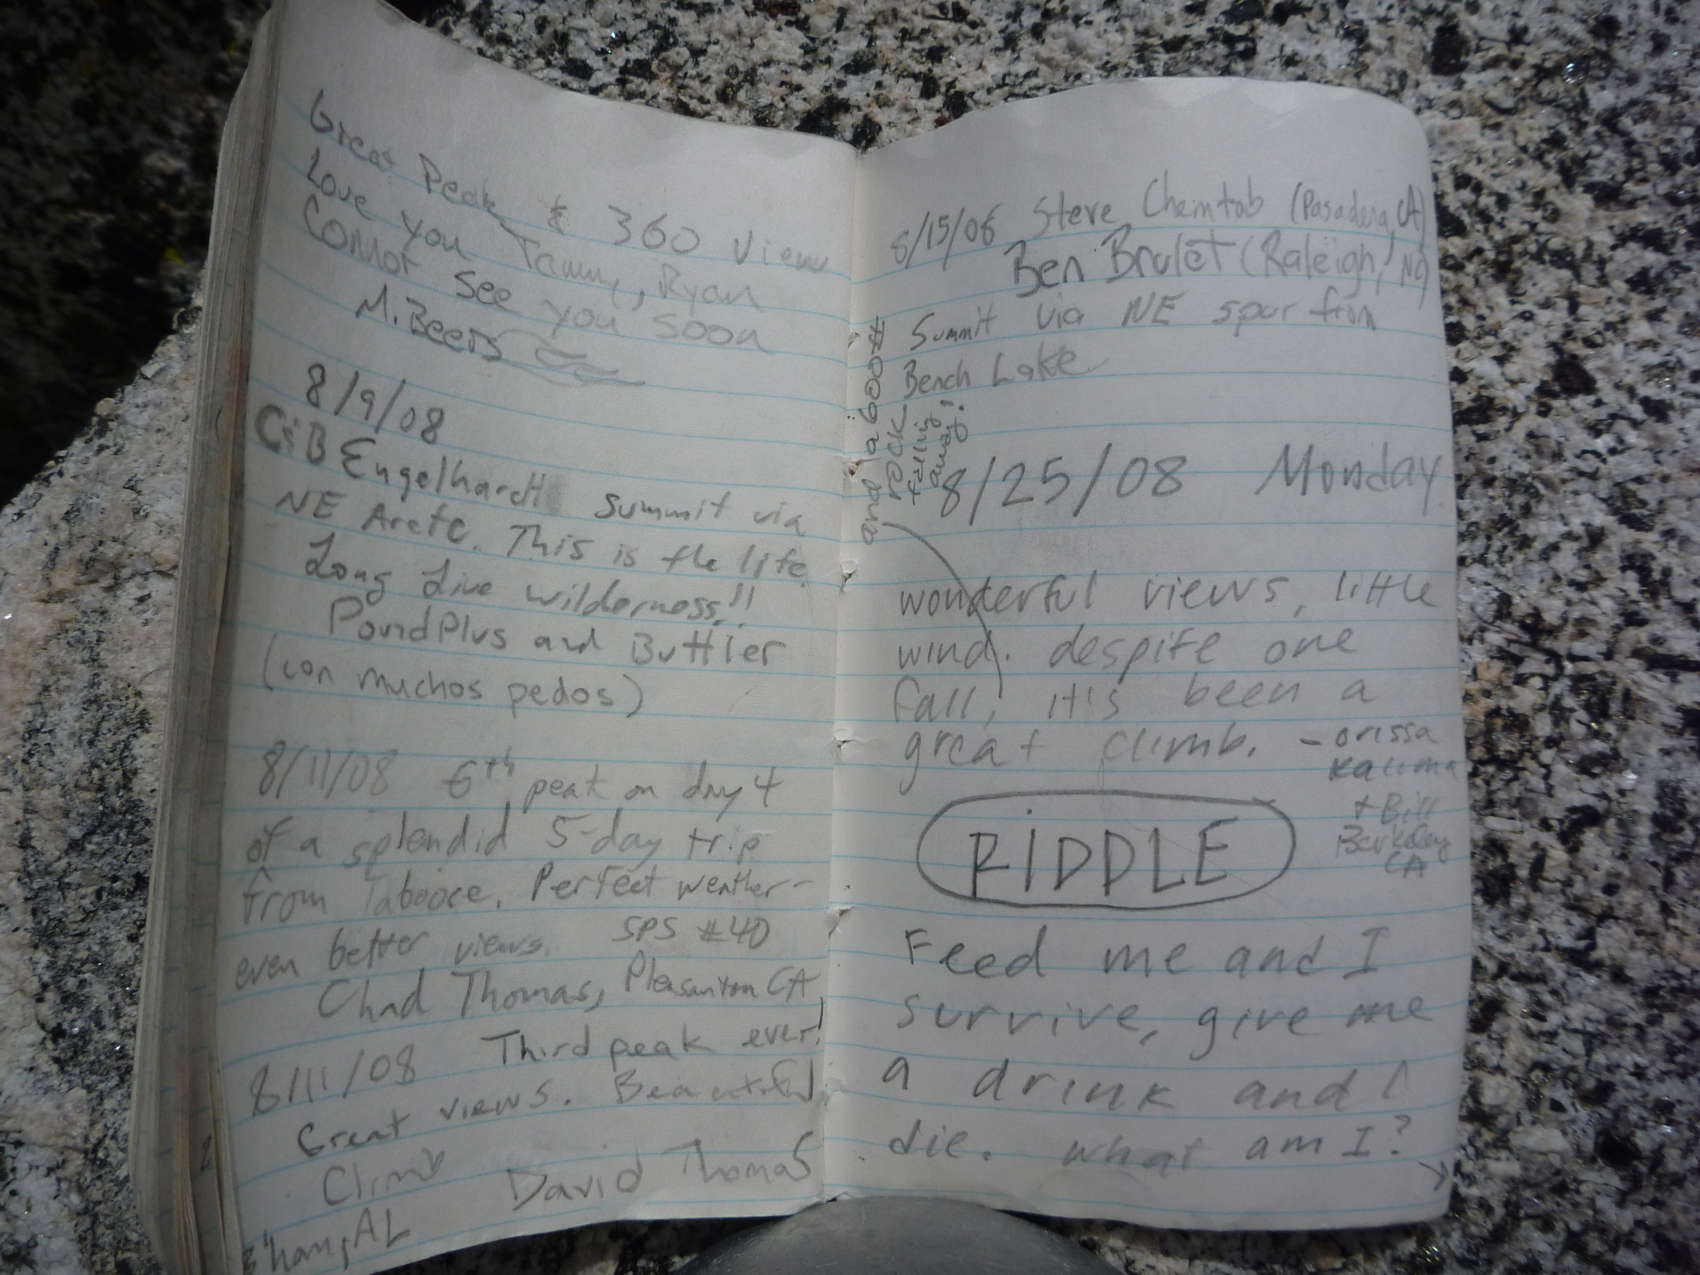 Great Peak & 360 View
Love you Tammy, Ryan
Connor See you soon
M. Beers
8/9/08
C&B Engelhardt Summit via
NE Arete. This is the life
Long Live wilderness!!
PoundPlus and Buttler
(con muchos pedos)
8/11/08 6th peak on day 4
of a splendid 5-day trip
from Taboose. Perfect weather-
even better views. SPS #40
Chad Thomas, Pleasanton CA
8/11/08 Third peak ever!
Great views. Beautiful
Climb
David Thomas
B'ham, AL
8/15/08 Steve Chemtob (Pasadena, CA)
Ben Brulet (Raleigh, NC)
Summit via NE spur from
Bench Lake
8/25/08 Monday
wonderful views, little
wind. despite one
fall, it's been a
and a 600#
rock
falling
away!
great climb. - orissa
+ Bill
Berkeley
CA
RiDDLE
Feed me and I
survive, give me
a drink and I
die. what am I?